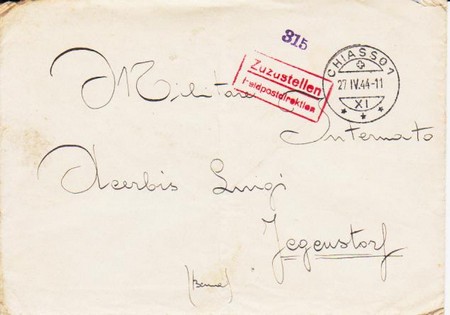 315
Zuzustellen
Feldpostdirektion
CHIASSO 1
27 IV.44-11
XI
Militare Internato
Acerbis Luigi
Jegenstorf
(Berna)